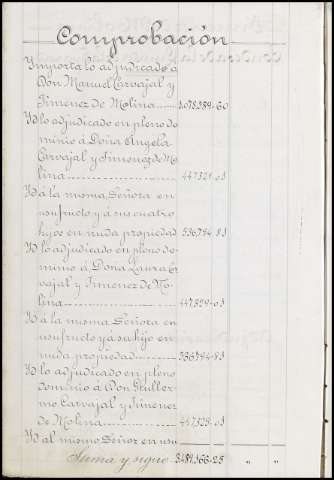 Comprobación
Importa lo adjudicado á
Don Manuel Carvajal y
Jimenez de Molina 1.078.989-60
Id lo adjudicado en pleno do
minio á Doña Angela
Carvajal y Jimenez de Mo
lina 447329-03
Id á la misma Señora en
usufructo y á sus cuatro
hijos en nuda propiedad 536.794-83
Id lo adjudicado en pleno do-
minio á Doña Laura Car
vajal y Jimenez de Mo-
lina 447329-03
Id á la misma Señora en
usufructo y á su hijo en
nuda propiedad 536794-83
Id lo adjudicado en pleno
dominio á Don Guiller-
mo Carvajal y Jimenez
de Molina 447329-03
Id al mismo Señor en usu
Suma y sigue 3.484.566-25 " "